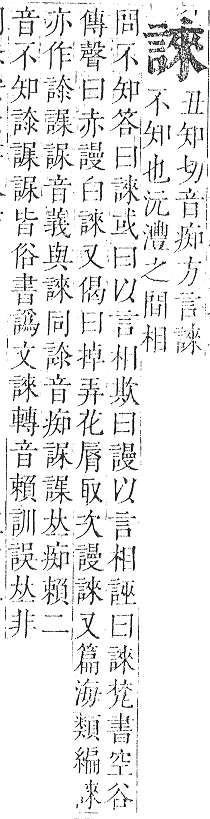 誺
丑知切音痴方言誺
不知也沅澧之間相
問不知答曰誺或曰以言相欺曰謾以言相誣曰誺梵書空谷
傳聲曰赤謾白誺又偈曰掉弄花脣取次謾誺又篇海類編誺
亦作音義與誺同音痴𠀤痴賴二
音不知皆俗書譌文誺轉音賴訓誤𠀤非